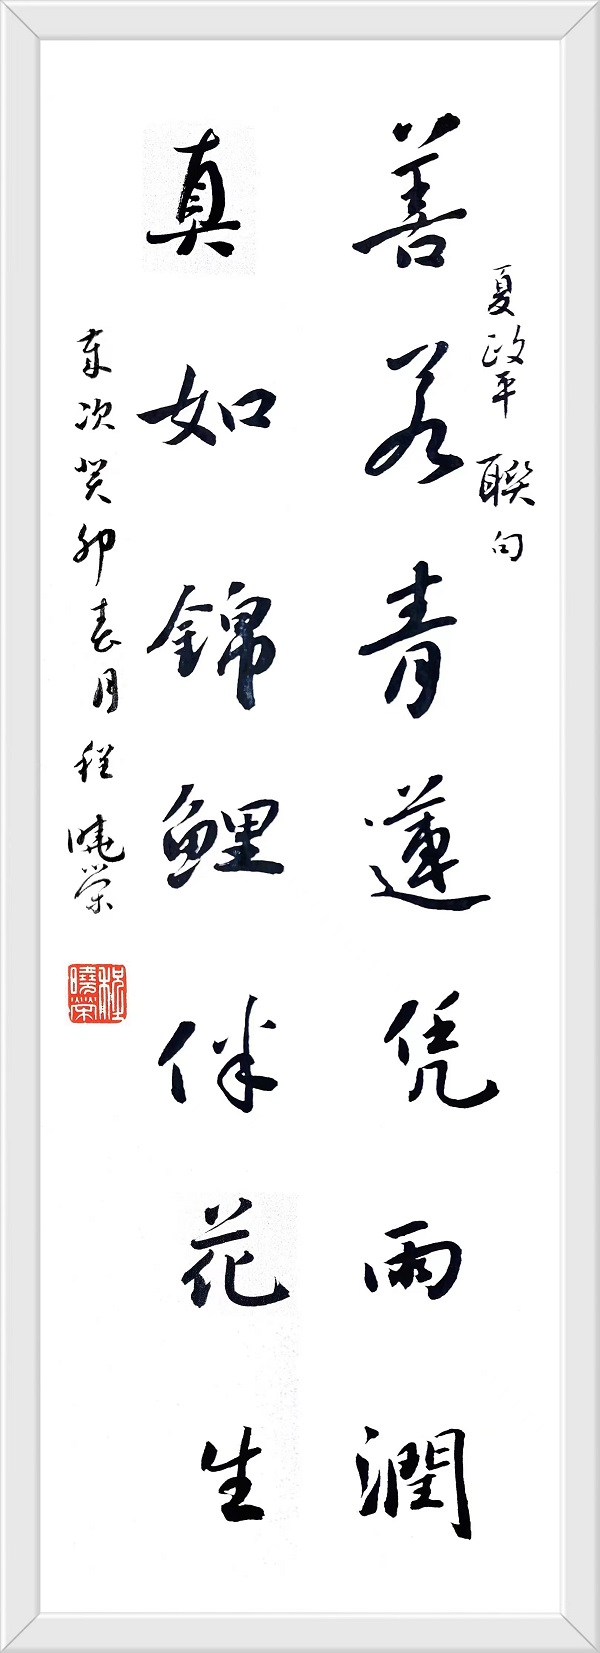 夏政平聯句
善若青蓮凭雨潤
真如錦鯉伴花生
歲次癸卯春月程曉榮
程曉榮